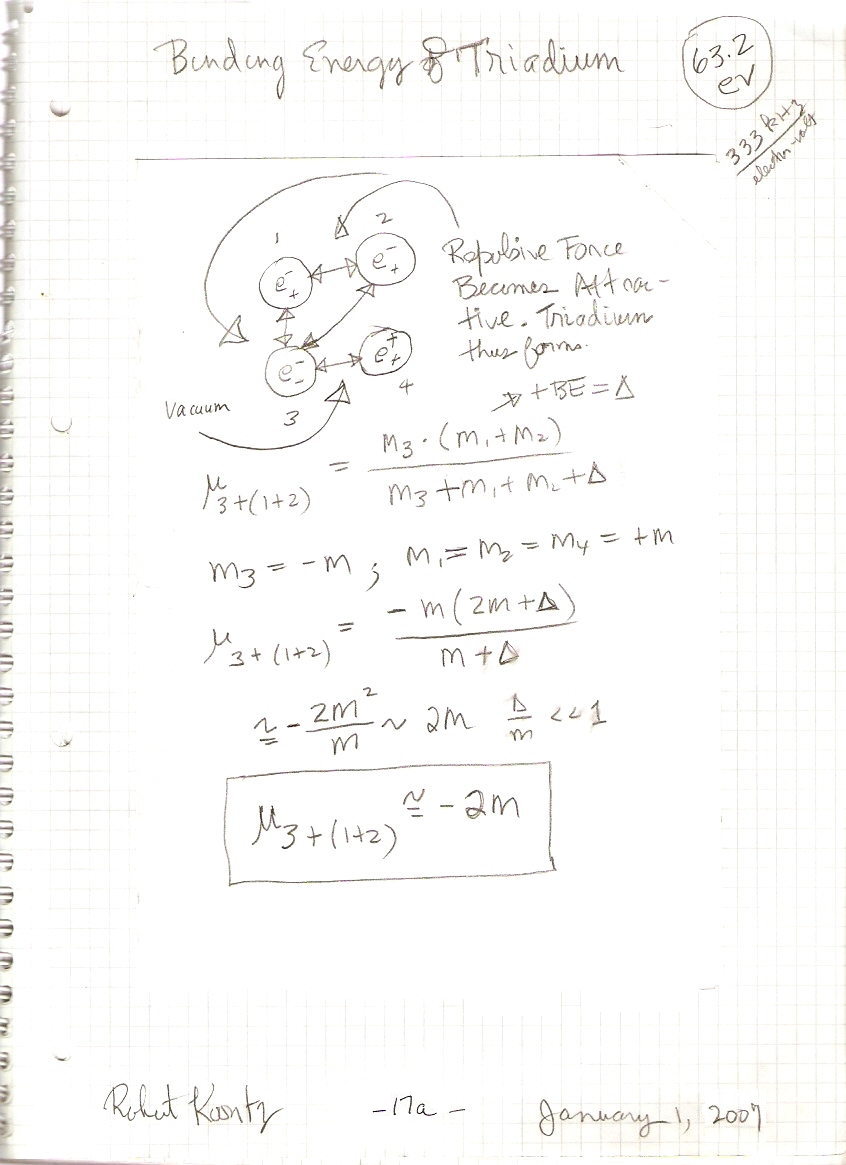 Binding Energy of Triadium
63.2
ev
333 kHz
electron-volt
1
2
e⁻₊
e⁻₊
e⁻₋
e⁺₊
3
4
Vacuum
Repulsive Force
Becomes Attrac-
tive. Triadium
thus forms.
+BE = Δ
μ₃₊₍₁₊₂₎ = m₃·(m₁+m₂) / m₃+m₁+m₂+Δ
m₃ = -m ; m₁ = m₂ = m₄ = +m
μ₃₊₍₁₊₂₎ = -m(2m+Δ) / m+Δ
≅ - 2m² / m ~ 2m Δ/m << 1
μ₃₊₍₁₊₂₎ ≅ -2m
Robert Koontz -17a- January 1, 2007